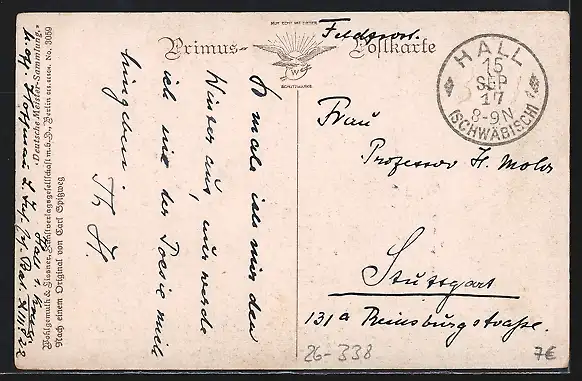 Feldpost.
Primus- Postkarte
NUR ECHT MIT DIESER
W&G
SCHUTZMARKE
HALL
15
SEP
17
8-9N
(SCHWÄBISCH)
Frau
Professor H. Mohr
Stuttgart
131a Reinsburgstraße.
So male ich mir den
Winter aus, nur werde
ich mir der Poesie mich
hingeben.
Th. H.
„Deutsche Meister-Sammlung.“ No. 3059
Wohlgemuth & Lissner, Kunstverlagsgesellschaft m.b.H., Berlin
Nach einem Original von Carl Spitzweg
26-338
7€